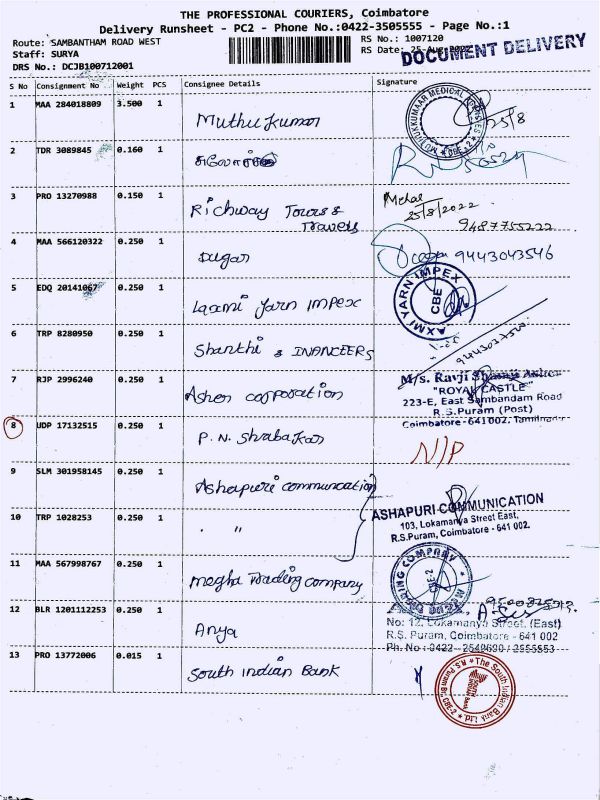 THE PROFESSIONAL COURIERS, Coimbatore
Delivery Runsheet - PC2 - Phone No.:0422-3505555 - Page No.:1
Route: SAMBANTHAM ROAD WEST
RS No.: 1007120
Staff: SURYA
RS Date: 25-Aug-2022
DOCUMENT DELIVERY
DRS No.: DCJB100712001
S No Consignment No Weight PCS Consignee Details Signature
1 MAA 284018809 3.500 1 Muthu kumar
25/8
2 TDR 3089845 0.160 1
3 PRO 13270988 0.150 1 Richway Tours &
Travels
25/8/2022
9487755222
4 MAA 566120322 0.250 1 Dugar
9443043546
5 EDQ 20141067 0.250 1 Laxmi Yarn Impex
AXMI YARN IMPEX
CBE
6 TRP 8280950 0.250 1 Shanthi & INANCEERS
7 RJP 2996240 0.250 1 Asher corporation
M/s. Ravji
"ROYAL CASTLE"
223-E, East Sambandam Road
R.S.Puram (Post)
Coimbatore - 641 002. Tamilnadu
8 UDP 17132515 0.250 1 P. N. Shrabakar
N/P
9 SLM 301958145 0.250 1 Ashapuri communcation
10 TRP 1028253 0.250 1 " "
ASHAPURI COMMUNICATION
103, Lokamanya Street East,
R.S.Puram, Coimbatore - 641 002.
11 MAA 567998767 0.250 1 Megha Trading company
12 BLR 1201112253 0.250 1 Anya
No: 12, Lokamanya Street, (East)
R.S. Puram, Coimbatore - 641 002
Ph. No : 0422 - 2540690 / 2555553
13 PRO 13772006 0.015 1 South Indian Bank
The South Indian Bank Ltd.